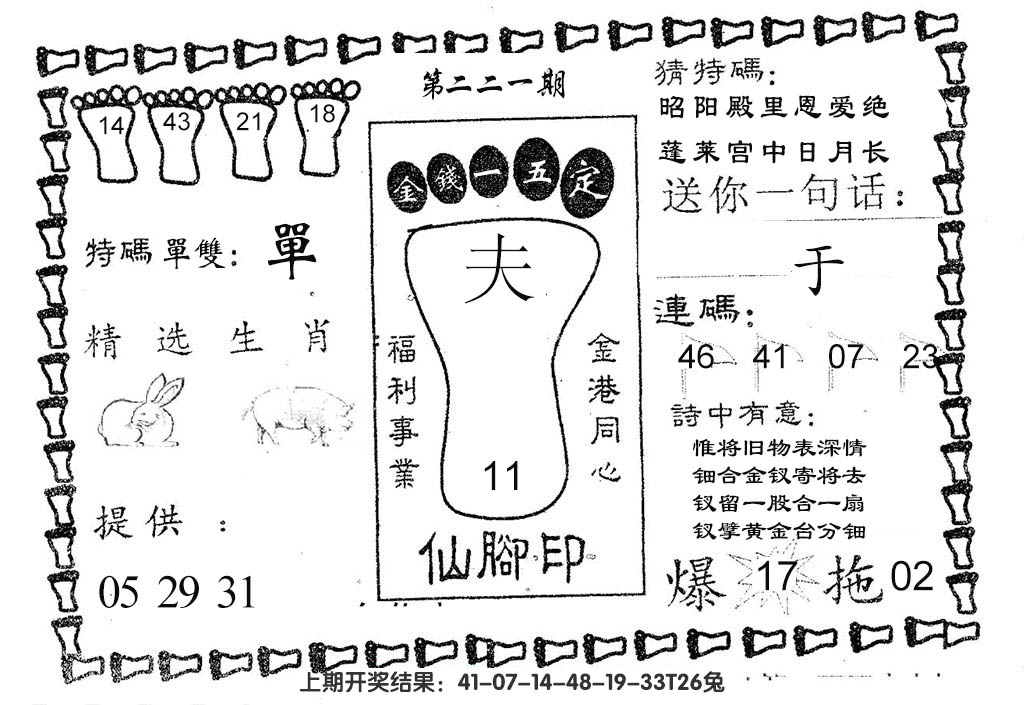 14 43 21 18
特碼單雙：單
精选生肖
提供：
05 29 31
第二二一期
金錢一五定
夫
福利事業
金港同心
11
仙腳印
猜特碼：
昭阳殿里恩爱绝
蓬莱宫中日月长
送你一句话：
于
連碼：
46 41 07 23
詩中有意：
惟将旧物表深情
钿合金钗寄将去
钗留一股合一扇
钗擘黄金台分钿
爆 17 拖 02
上期开奖结果：41-07-14-48-19-33T26兔